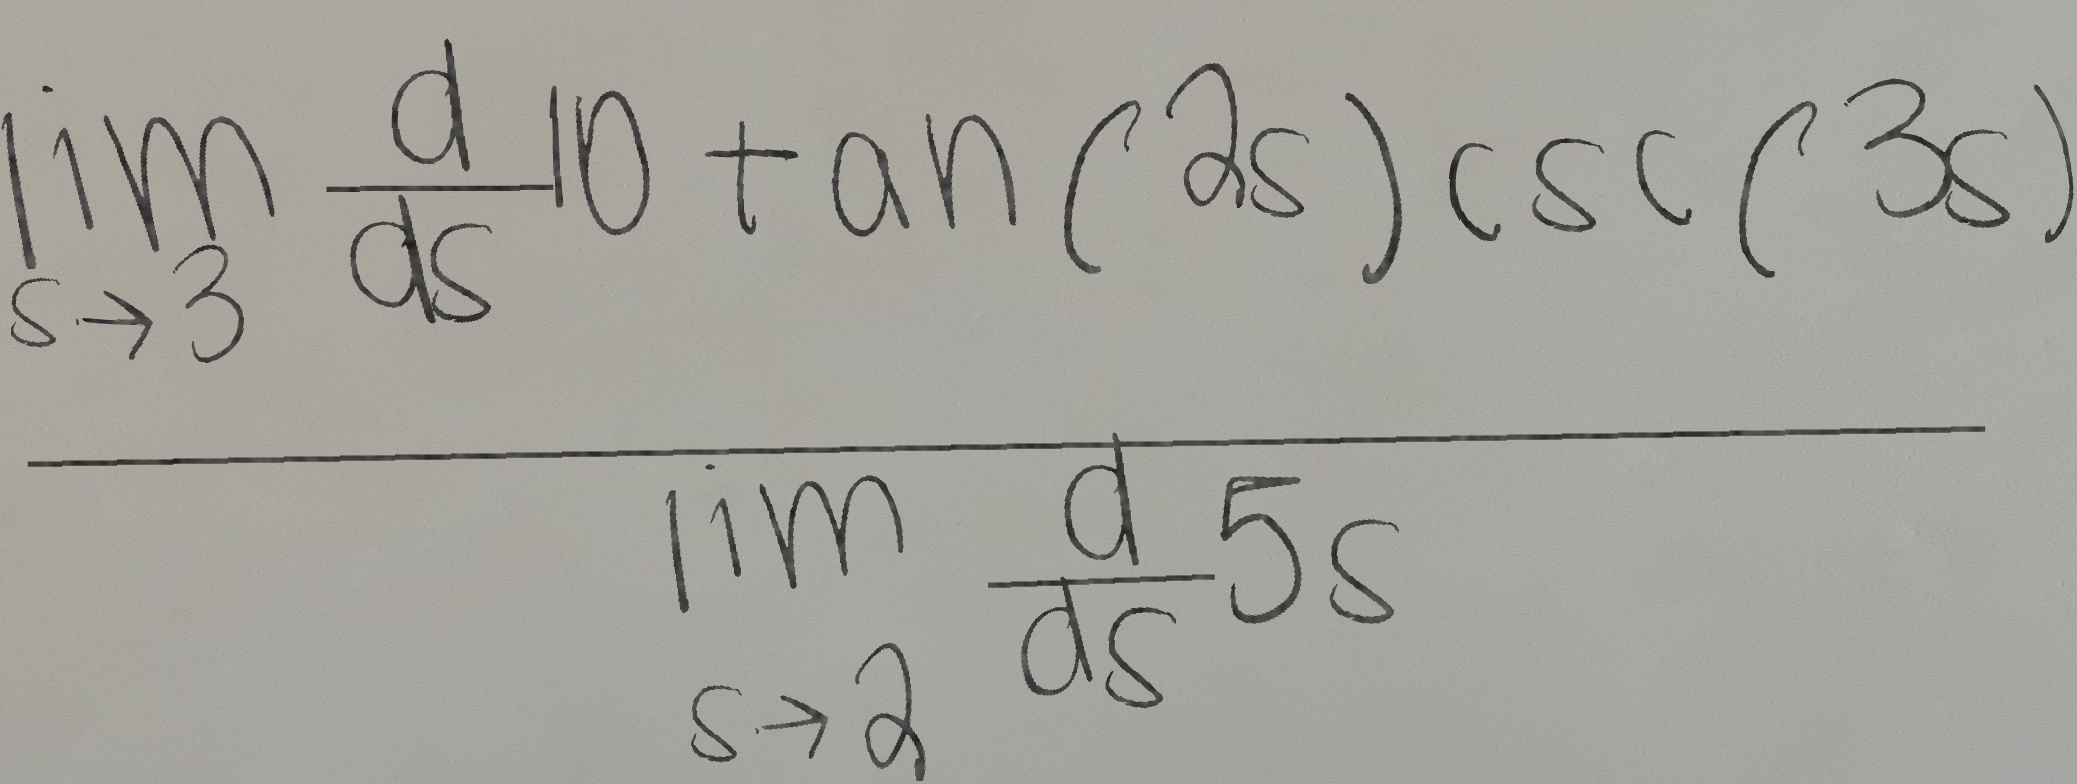 \frac{\lim_{s \to 3} \frac{d}{ds} 10 \tan(2s) \csc(3s)}{\lim_{s \to 2} \frac{d}{ds} 5s}